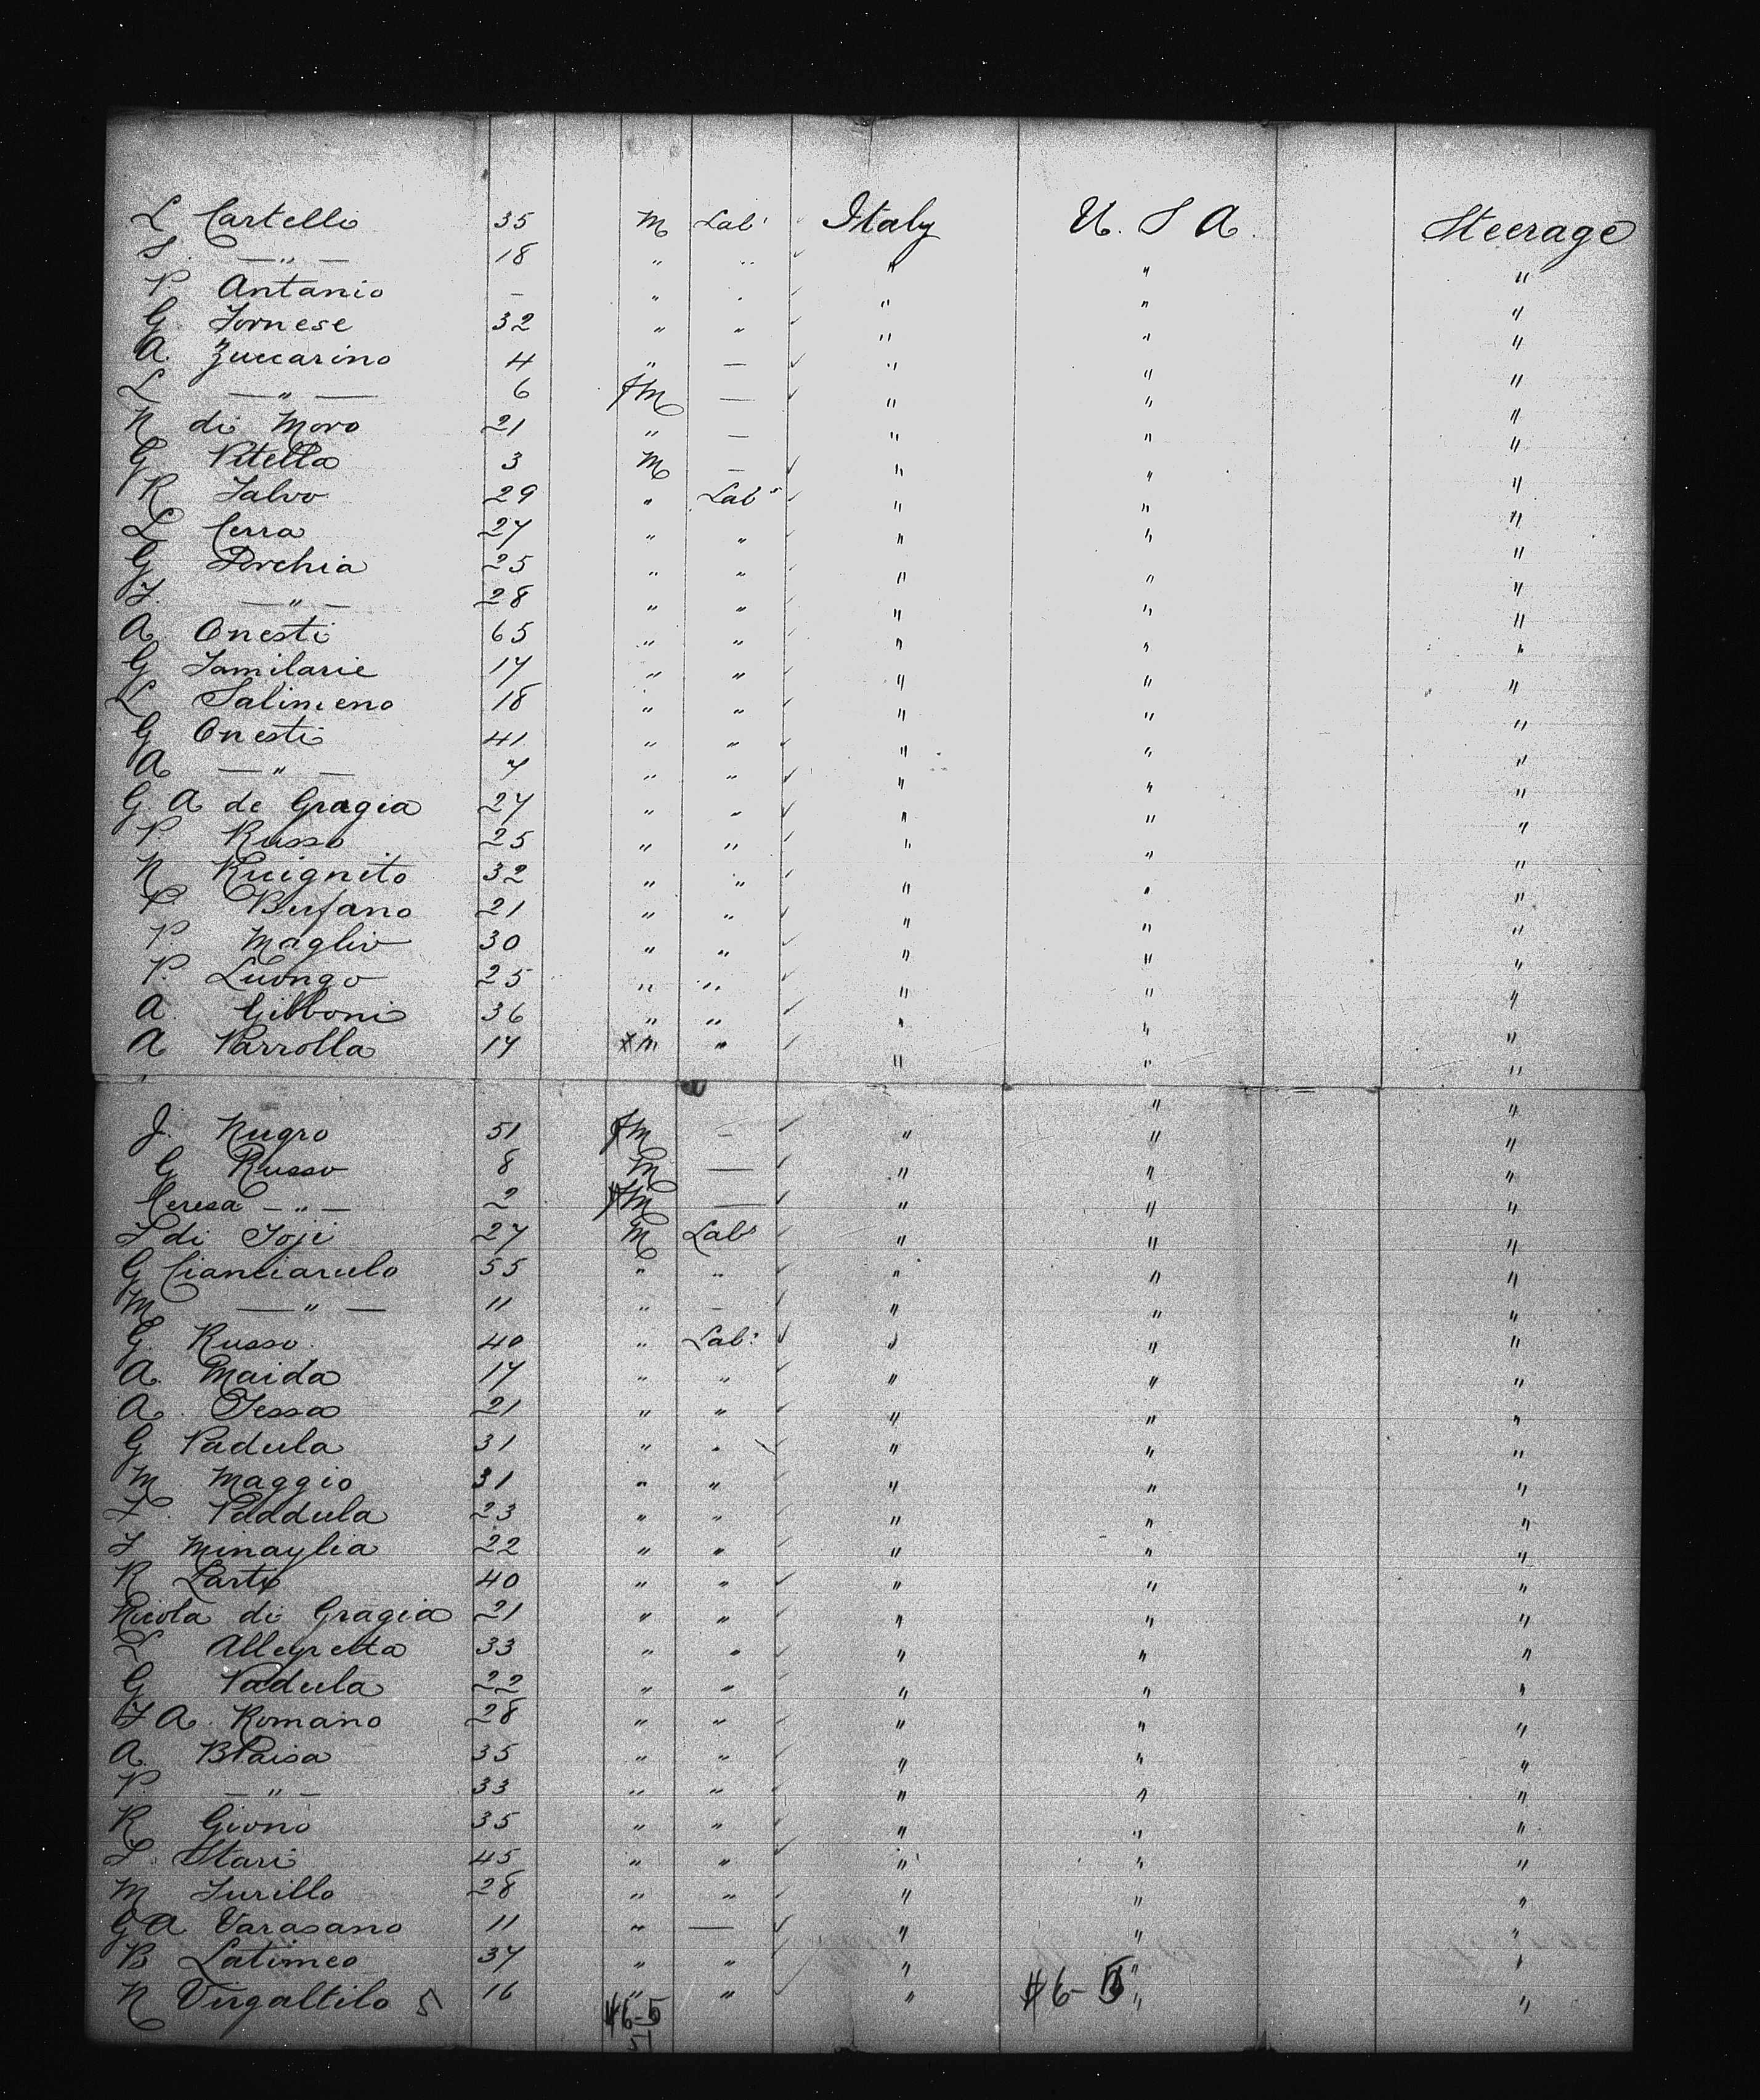 L Cartello 35 M Lab' Italy U. S A. Steerage
S. — " — 18 " " " " "
P Antanio — " " " " "
G. Fornese 32 " " " " "
A. Zuccarino 4 " — " " "
L — " — 6 fM — " " "
N di Moro 21 " — " " "
G Vitella 3 M — " " "
R. Salvo 29 " Lab " " "
L Cerra 27 " " " " "
G Porchia 25 " " " " "
F. — " — 28 " " " " "
A Onesti 65 " " " " "
G Famularie 17 " " " " "
L Salimeno 18 " " " " "
G Onesti 41 " " " " "
A — " — 7 " " " " "
G A de Gragia 27 " " " " "
P. Russo 25 " " " " "
N Ruignito 32 " " " " "
P Bufano 21 " " " " "
P. Maglio 30 " " " " "
P. Luongo 25 " " " " "
A. Gibboni 36 " " " " "
A Parrolla 17 m " " " "
J. Nugro 51 fM — " " "
G Russo 8 M — " " "
Teresa — " — 2 fM — " " "
L di Joji 27 M Lab " " "
G Cianciarulo 55 " " " " "
M — " — 11 " — " " "
G. Russo. 40 " Lab: " " "
A. Maida 17 " " " " "
A. Tessa 21 " " " " "
G Padula 31 " " " " "
M Maggio 31 " " " " "
F. Paddula 23 " " " " "
F Minaylia 22 " " " " "
R Larti 40 " " " " "
Nicola di Gragia 21 " " " " "
L Allegretta 33 " " " " "
G Padula 22 " " " " "
F A. Romano 28 " " " " "
A. Blaisa 35 " " " " "
P. — " — 33 " " " " "
R Giono 35 " " " " "
L. Stari 45 " " " " "
M Furillo 28 " " " " "
G A Varasano 11 " — " " "
B Latimeo 37 " " " " "
N Virgaltilo 5 16 " " " " "
46-5 46-5
51